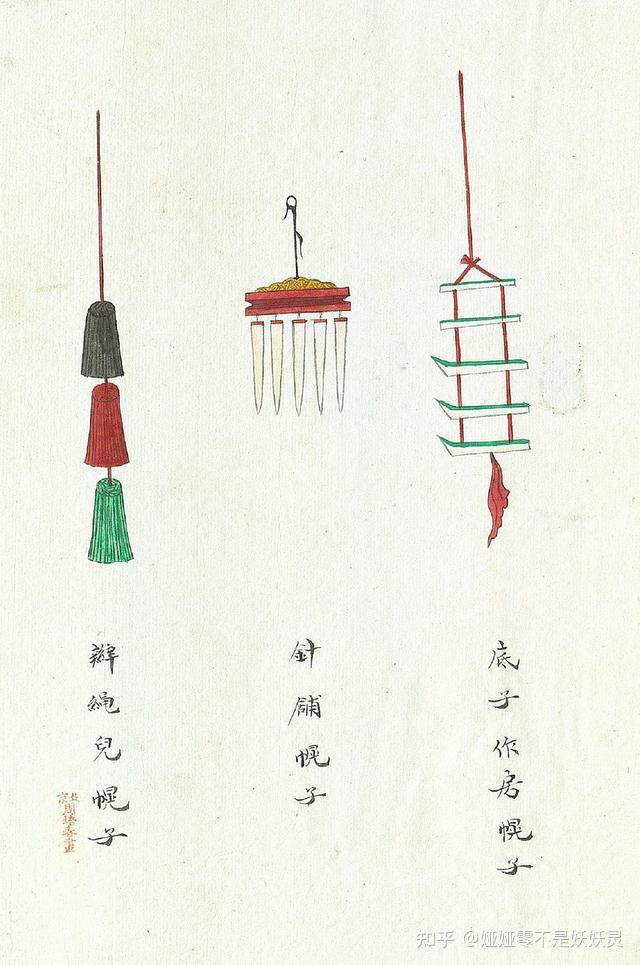 底子作房幌子
針舖幌子
辮繩兒幌子
北京周培春畫
知乎 @娅娅零不是妖妖灵